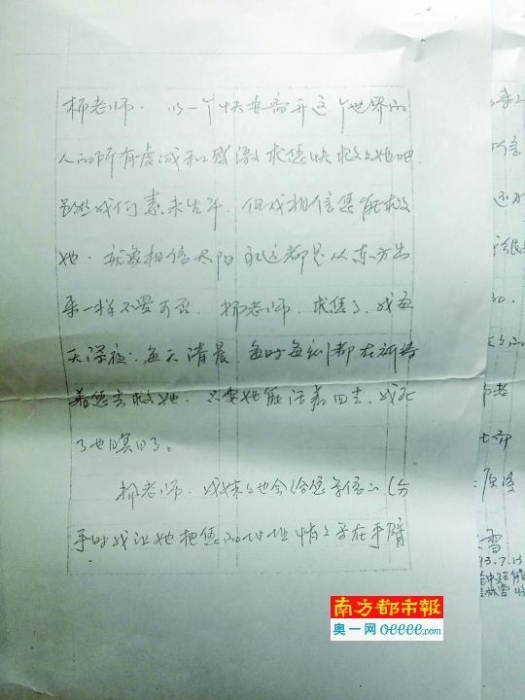 柳老师，以一个快要离开这个世界的
人的所有虔诚和感激求您快救救她吧，
虽然我们素未生平，但我相信您能救
她，就象相信太阳永远都是从东方出
来一样不容可否，柳老师，求您了，我每
天深夜，每天清晨，每时每刻都在祈祷
着您去救她，只要她能活着回去，我死
了也瞑目了。
柳老师，我妹也会给您写信的（分
手时我让她把您的地址悄悄写在手臂
南方都市報
奥一网 oeeee.com
雪
93.7.13